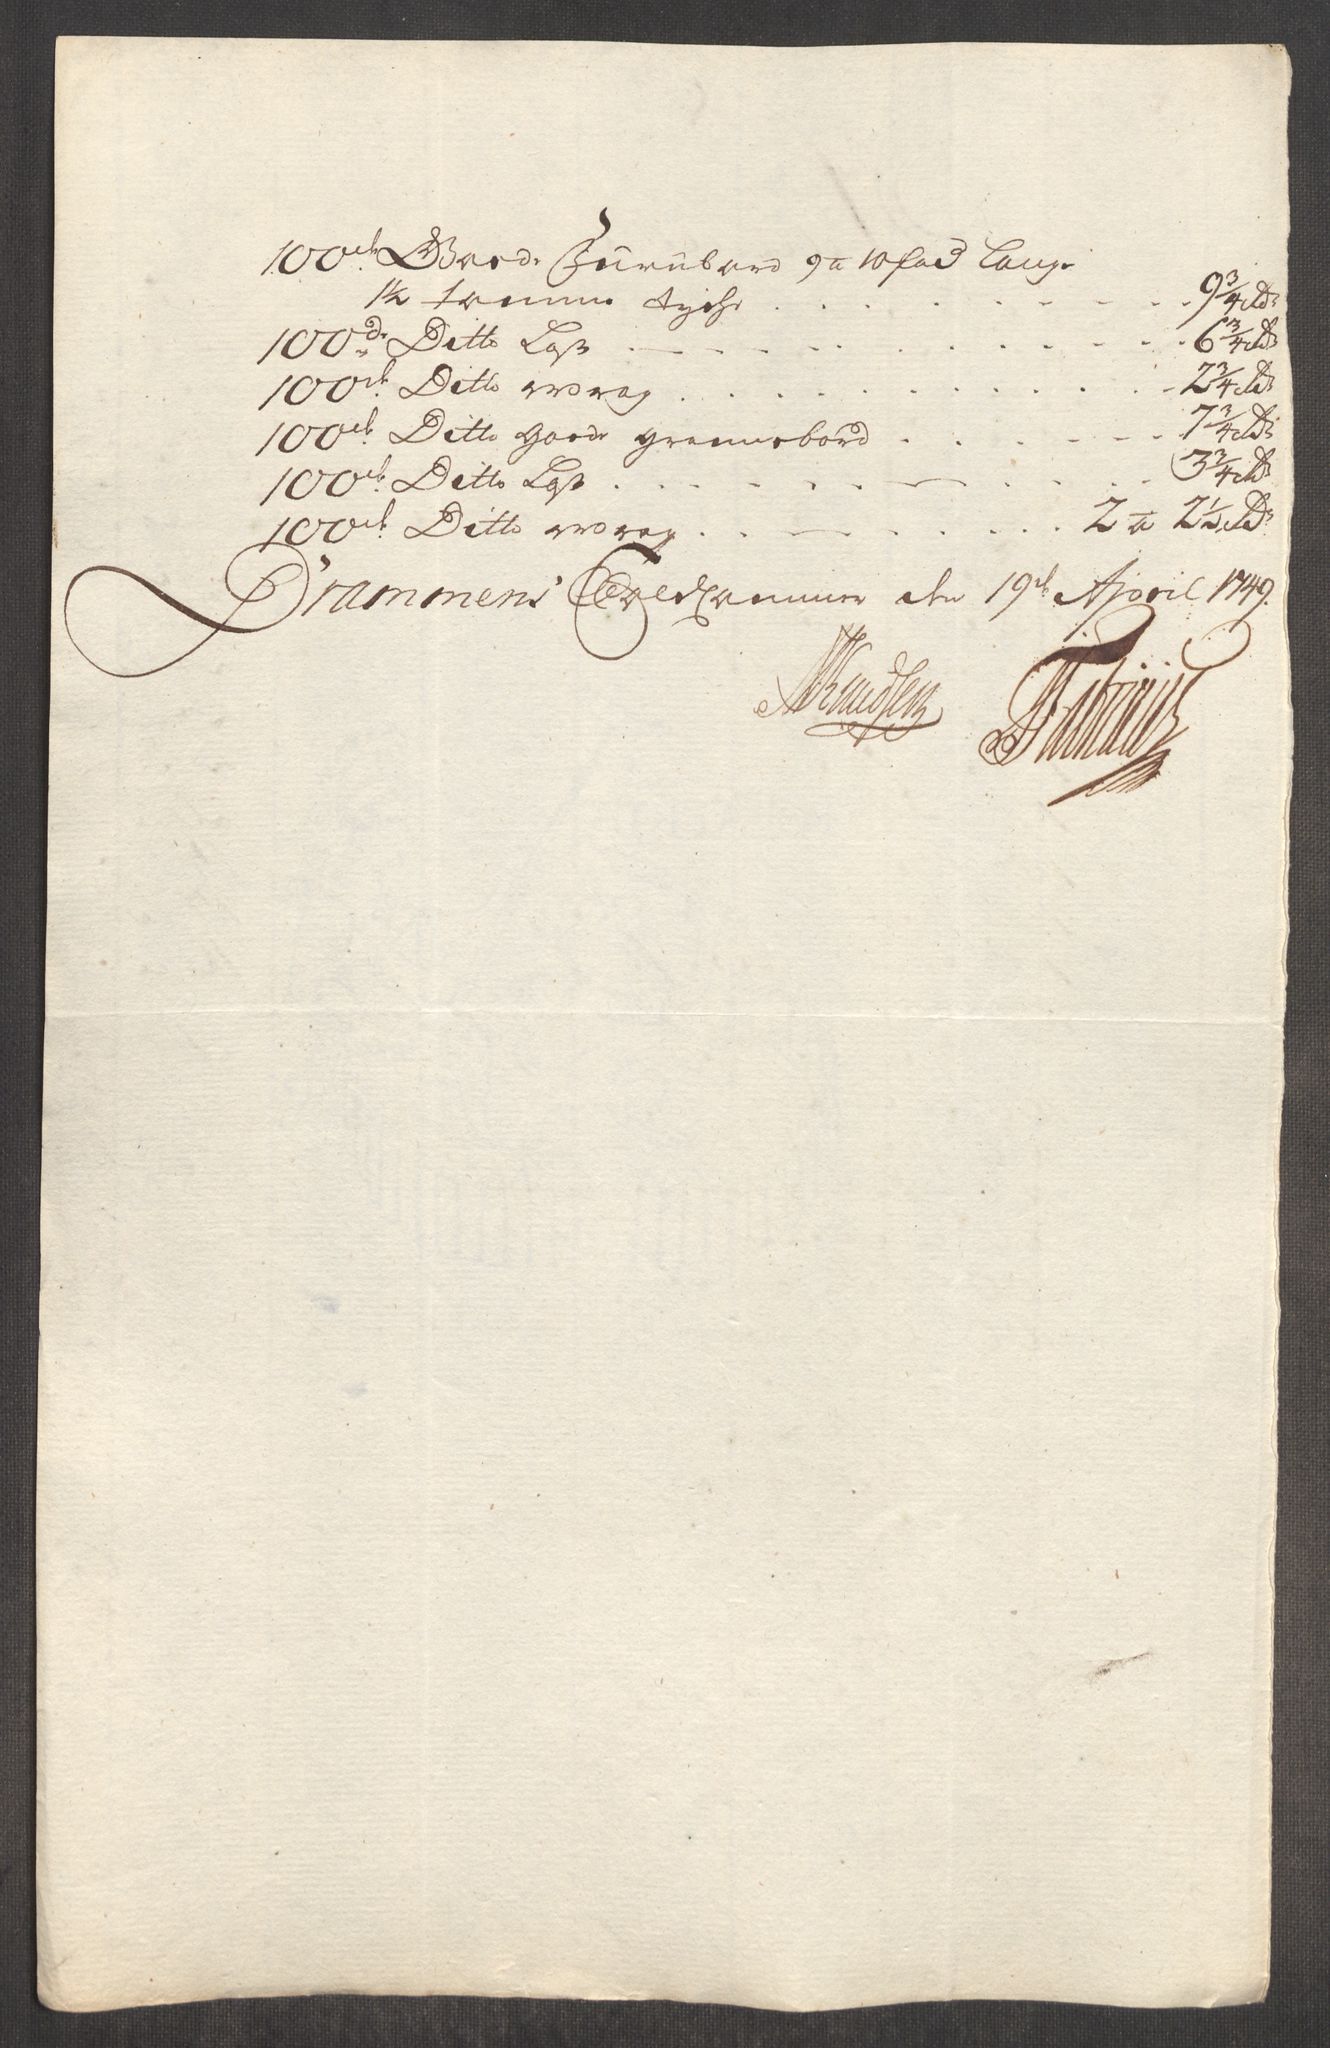 100de Goede Furubord 9 a 10 fod Lange
1¼ tomme tycke . . . . . . . . . 9¾ Rdr
100de Ditto Last . . . . . . . . . 6¾ Rdr
100de Ditto wrag . . . . . . . . . 2¾ Rdr
100de Ditto goede grannebord . . . . . . . 7¾ Rdr
100de Ditto Last . . . . . . . . . 3¾ Rdr
100de Ditto wrag . . . . . . . . 2 a 2½ Rdr
Drammens Toldkammer den 19de April 1749.
Knudsen Fabritius